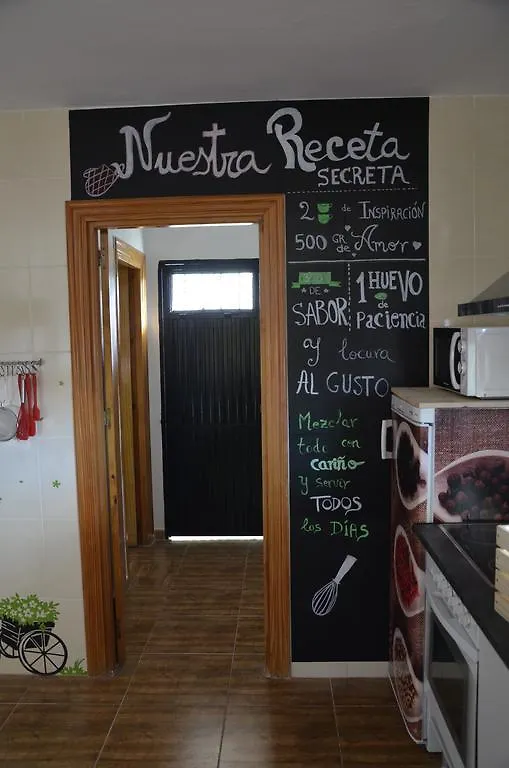 Nuestra Receta
SECRETA
2 de INSPIRACIÓN
500 GR de Amor
DE SABOR
1 HUEVO
de PACIENCIA
y locura
AL GUSTO
Mezclar
todo con
cariño
y servir
TODOS
los DÍAS